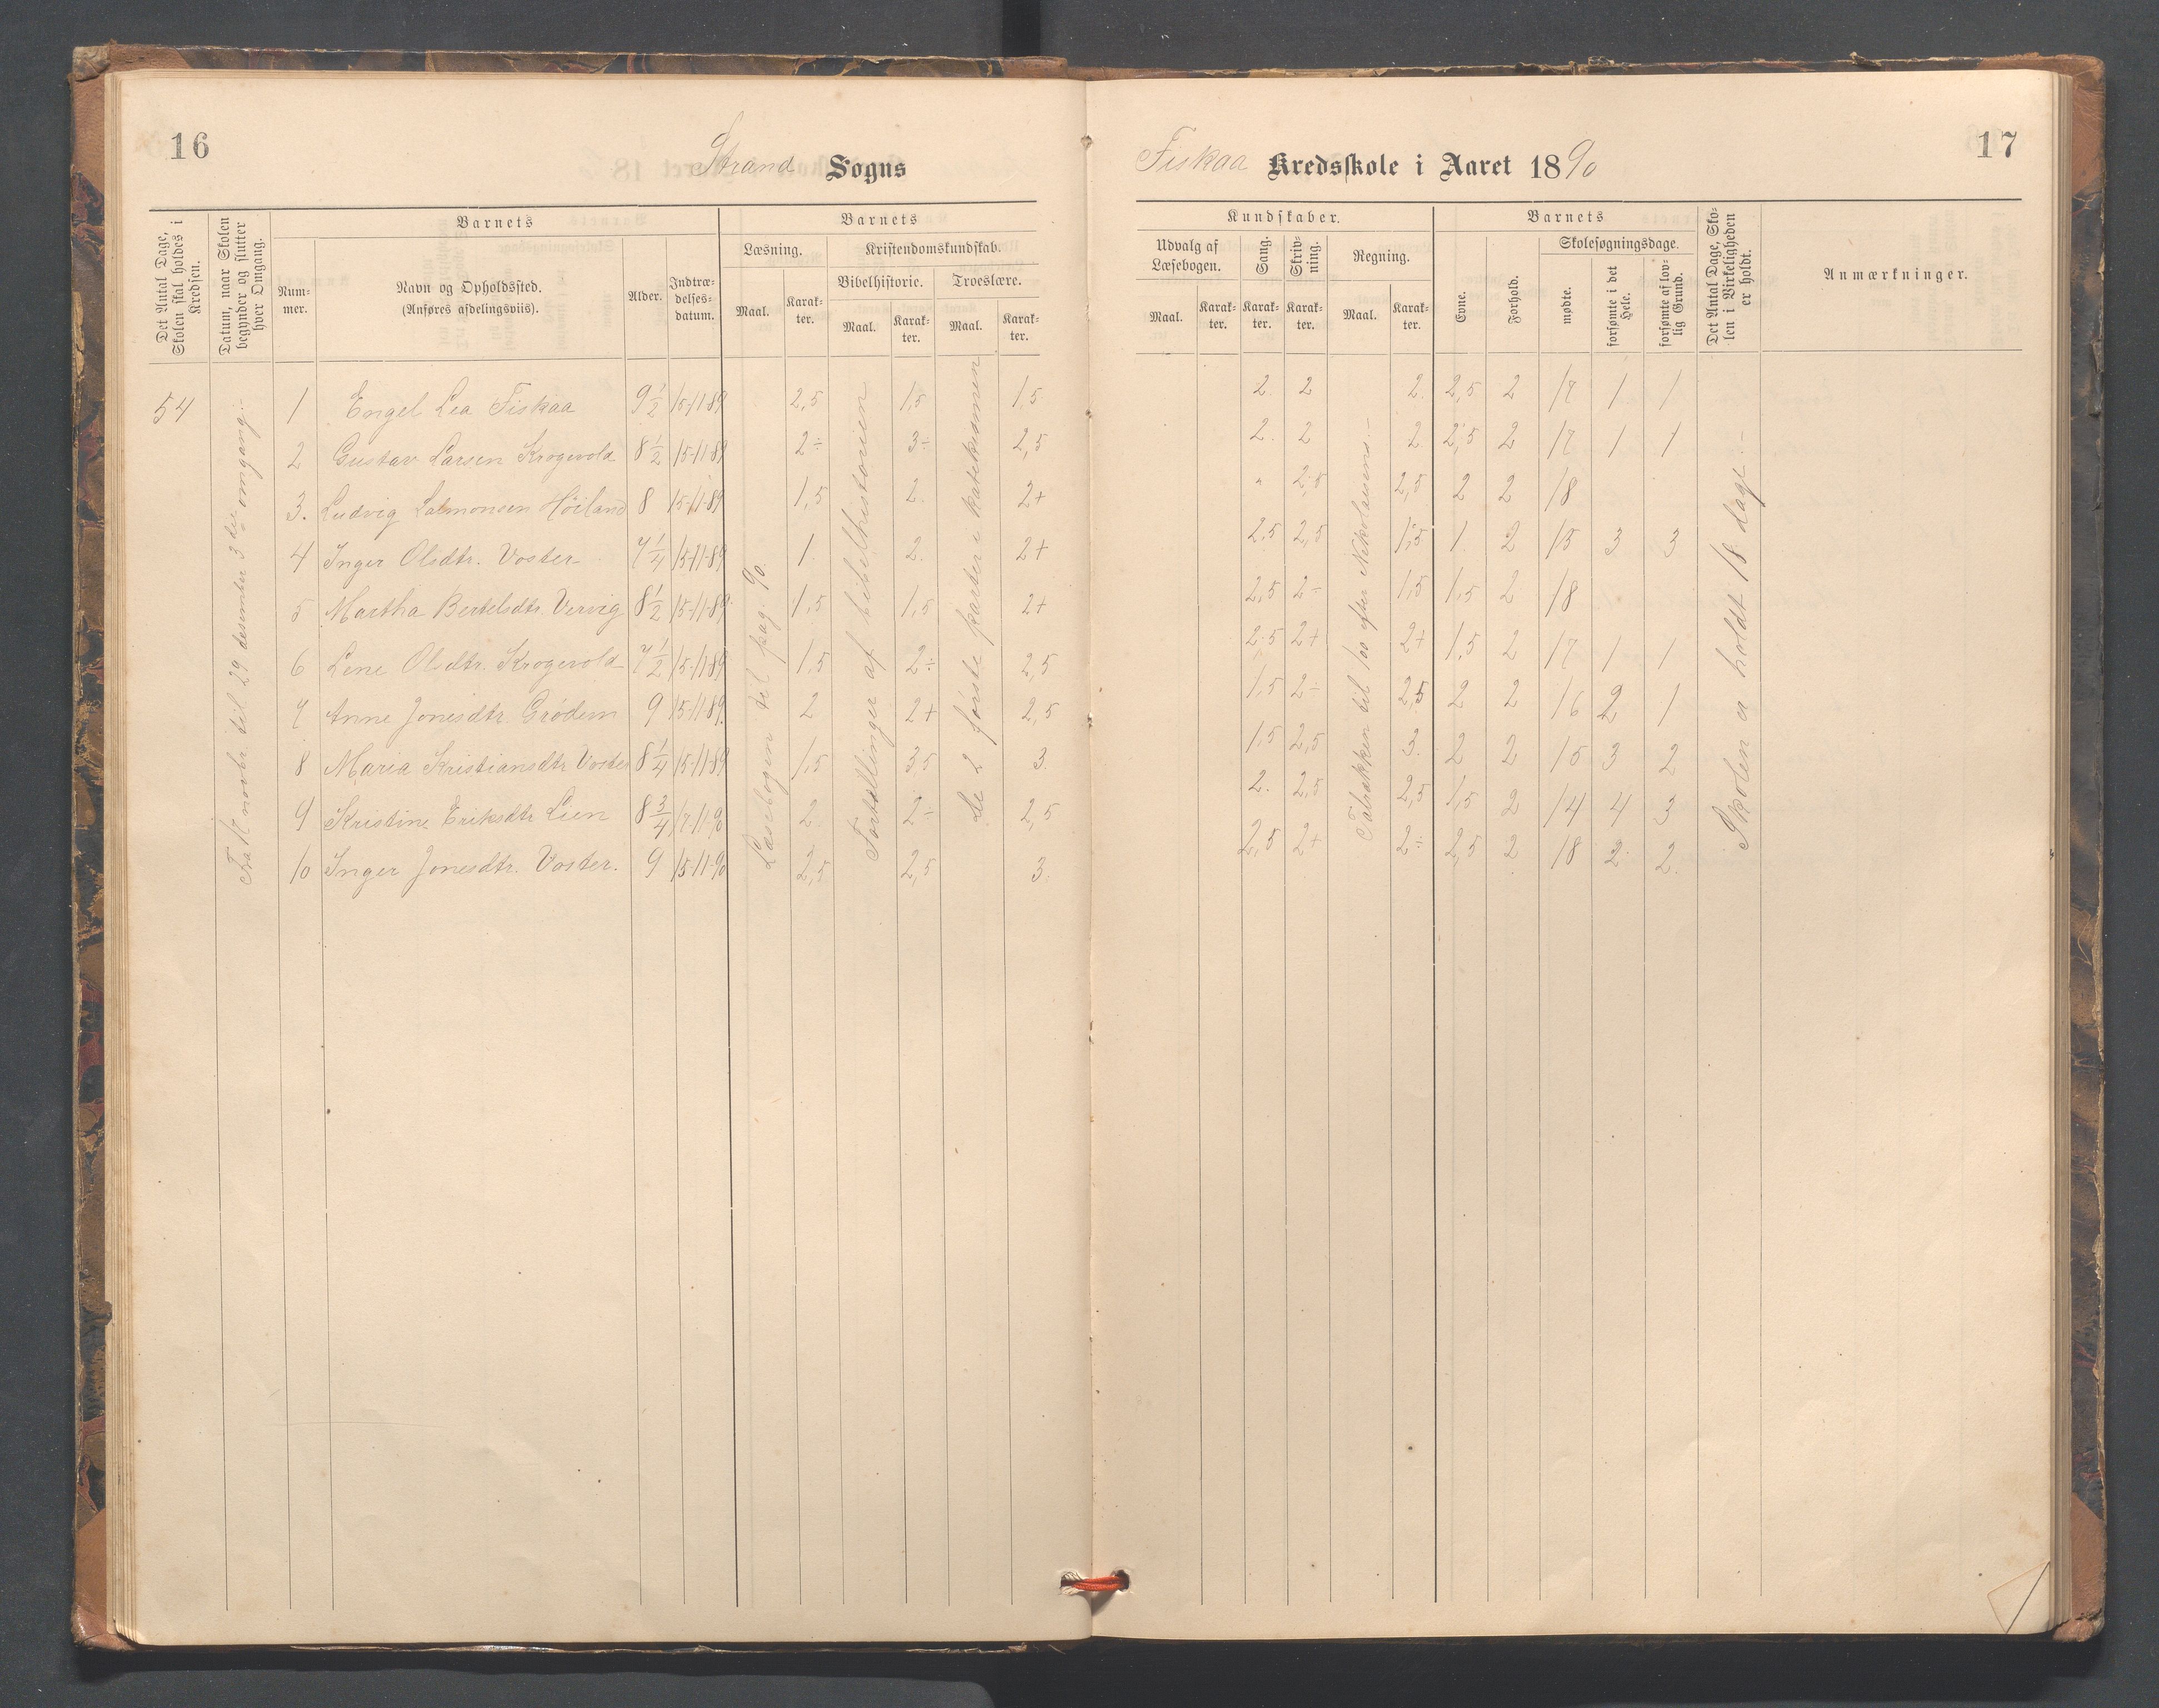 16
Strand Sogns
Det Antal Dage, Skolen skal holdes i Kredsen.
Datum, naar Skolen begynder og slutter hver Omgang.
Barnets
Nummer.
Navn og Opholdssted.
(Anføres afdelingsviis).
Alder.
Indtrædelsesdatum.
Barnets
Læsning.
Maal.
Karakter.
Kristendomskundskab.
Bibelhistorie.
Maal.
Karakter.
Troeslære.
Maal.
Karakter.
54
novbr til 29 desember 3die omgang.-
Læsebogen til pag. 90.
Fortællinger af bibelhistorien
De 2 første parter i katekismen
1 Engel Lea Fiskaa 9½ 15-11-89 2,5 1,5 1,5
2 Gustav Larsen Krogevold 8½ 15-11-89 2÷ 3÷ 2,5
3. Ludvig Salmonsen Høiland 8 15-11-89 1,5 2. 2+
4 Inger Olsdtr. Voster 7¼ 15-11-89 1. 2. 2+
5 Martha Bertelsdtr. Vervig 8½ 15-11-89 1,5 1,5 2+
6 Lene Olsdtr. Krogevold 7½ 15-11-89 1,5 2÷ 2,5
7 Anne Jonesdtr. Grødem 9 15-11-89. 2 2+ 2,5
8 Maria Kristiansdtr Voster 8¼ 15-11-89 1,5 3,5 3.
9 Kristine Eriksdtr Lien 8¾ 17-11-90 2 2÷ 2,5
10 Inger Jonesdtr. Voster. 9 15-11-90 2,5 2,5 3.
17
Fiskaa Kredsskole i Aaret 1890
Kundskaber.
Udvalg af Læsebogen.
Maal.
Karakter.
Sang.
Karakter.
Skrivning.
Karakter.
Regning.
Maal.
Karakter.
Barnets
Evne.
Forhold.
Skolesøgningsdage.
mødte.
forsømte i det Hele.
forsømte af lovlig Grund.
Det Antal Dage, Skolen i Virkeligheden er holdt.
Anmærkninger.
Talrækken til 100 efter Nikolaisens.-
Skolen er holdt 18 dage.-
2. 2 2. 2,5 2 17 1 1
2. 2 2 2,5 2 17 1 1
" 2,5 2,5 2 2 18
2,5 2,5 1,5 1. 2 15 3 3
2,5 2÷ 1,5 1,5 2 18
2,5 2+ 2+ 1,5 2 17 1 1
1,5 2÷ 2,5 2 2 16 2 1
1,5 2,5 3. 2 2 15 3 2
2. 2,5 2,5 1,5 2 14 4 3
2,5 2+ 2÷ 2,5 2 18 2. 2.